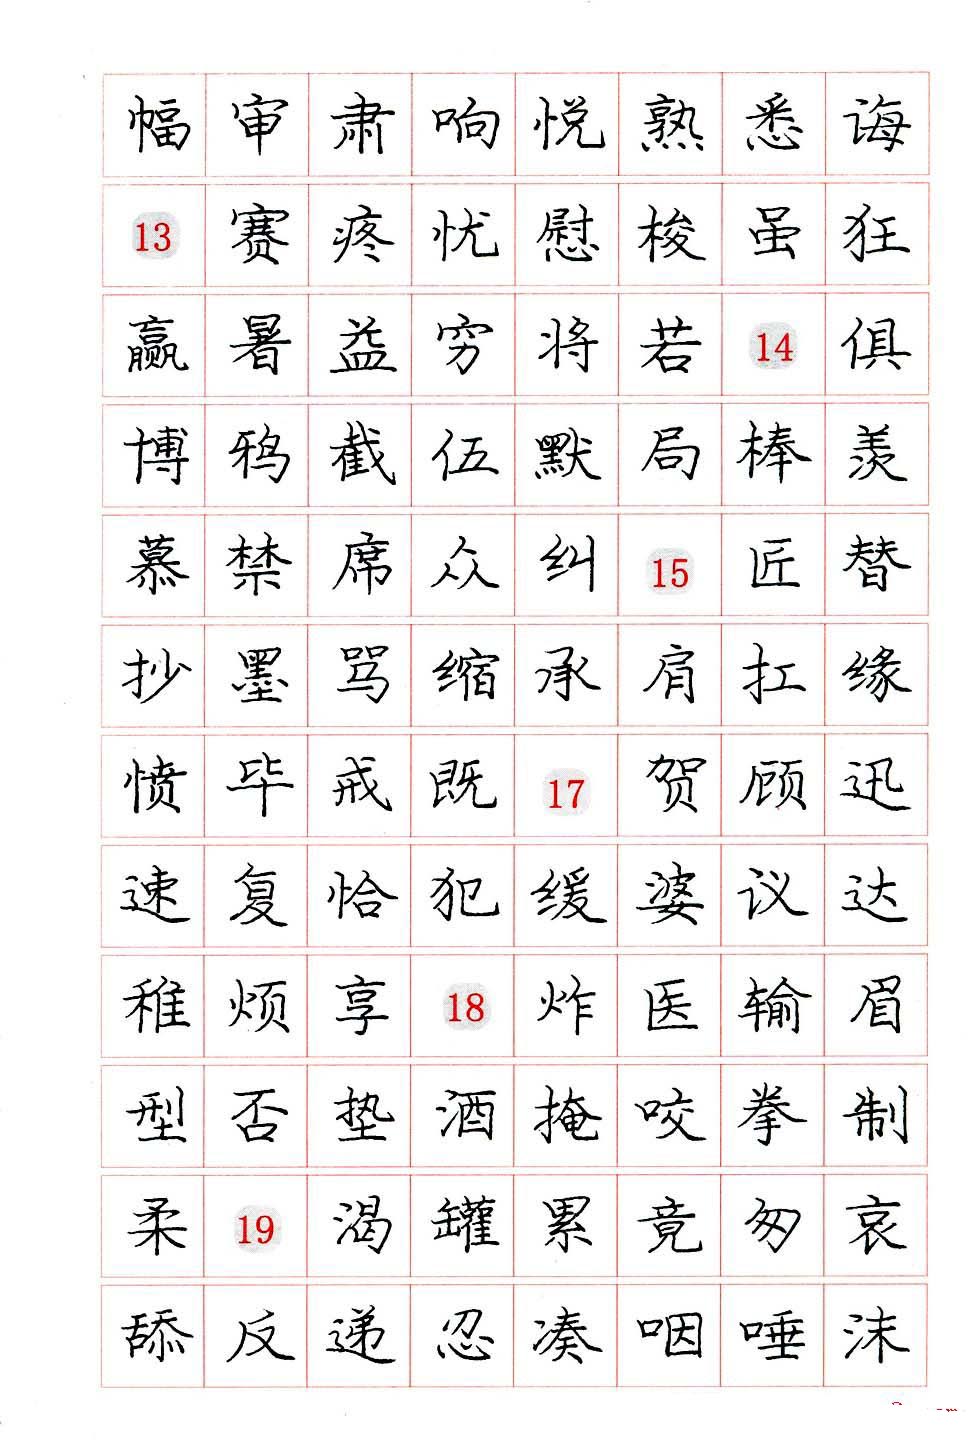 幅审肃响悦熟悉诲
13赛疼忧慰梭虽狂
赢暑益穷将若14俱
博鸦截伍默局棒羡
慕禁席众纠15匠替
抄墨骂缩承肩扛缘
愤毕戒既17贺顾迅
速复恰犯缓婆议达
稚烦享18炸医输眉
型否垫酒掩咬拳制
柔19渴罐累竟匆哀
舔反递忍凑咽唾沫